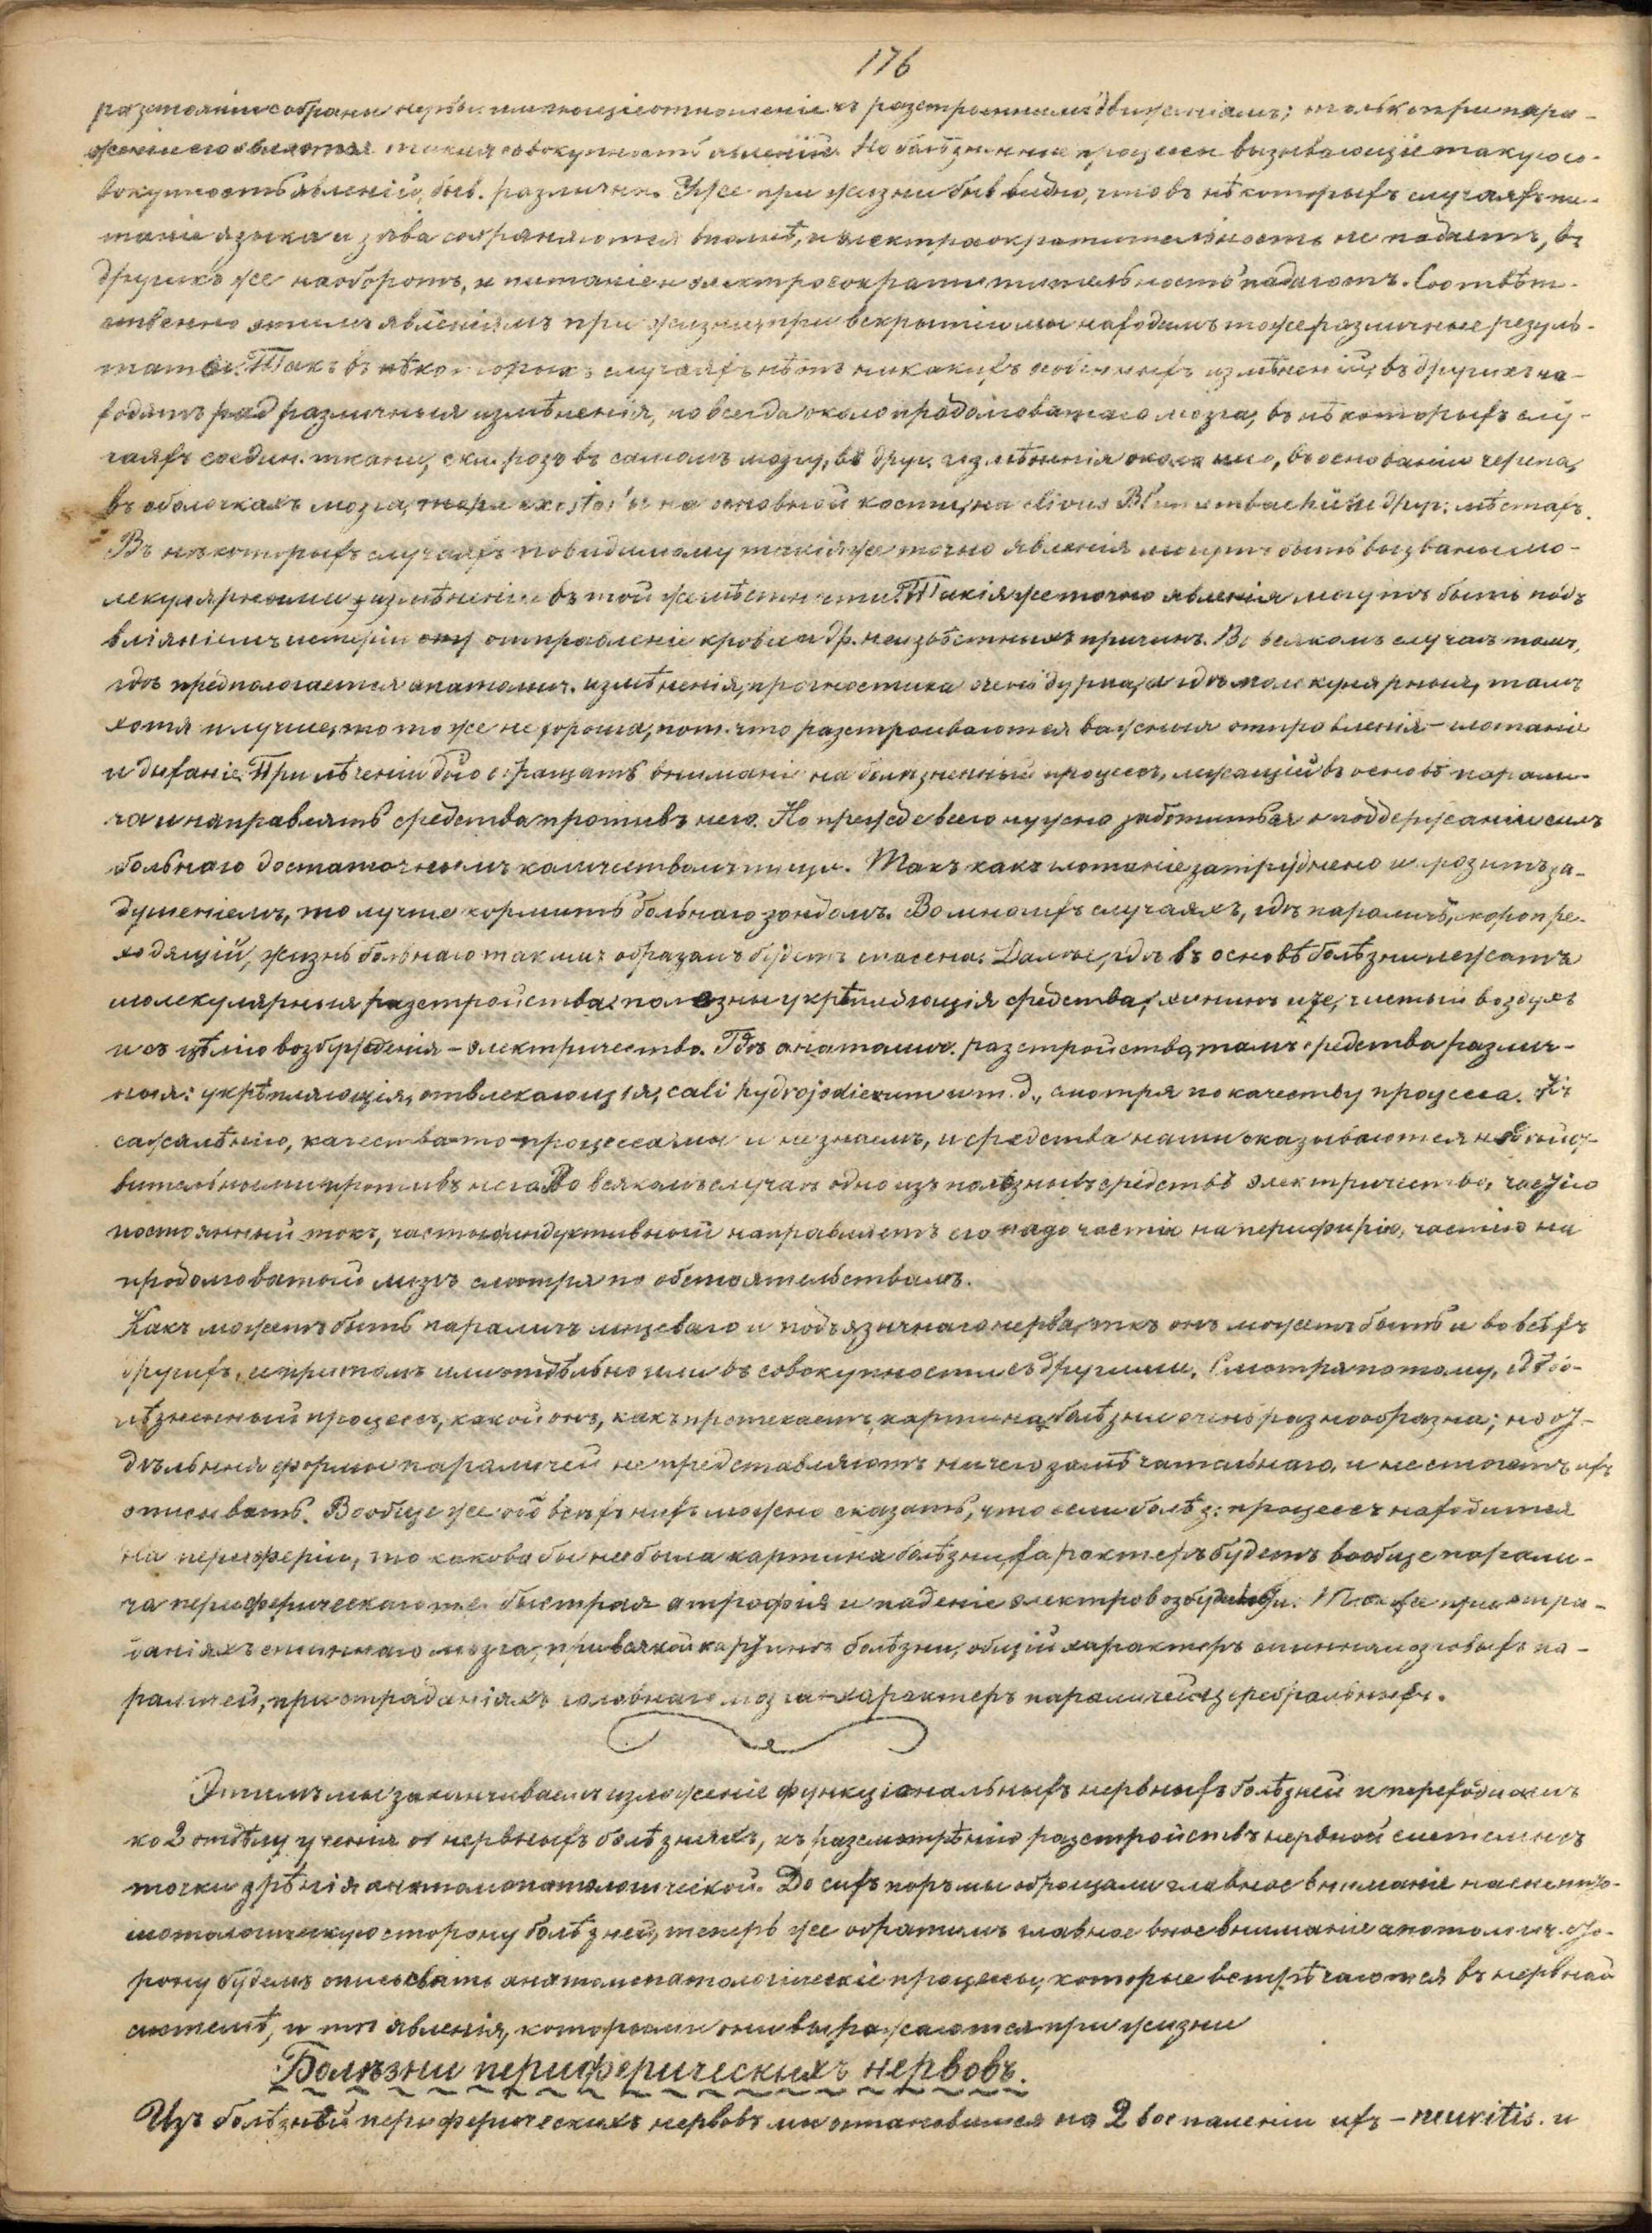 176
разстояніи собраны нервы имѣющіе отношеніе къ разстроеннымъ движеніямъ; только при пора-
женіи его является такая совокупность явленій. Но болѣзненные процессы вызывающіе такую со-
вокупность явленій, быв. различны. Уже при жизни быв. видно, что въ нѣкоторыхъ случаяхъ пи-
таніе языка и зѣва сохраняются вполнѣ, и электросократительность не падаетъ, въ
другихъ же наоборотъ, и питаніе и электросократительность падаютъ. Соотвѣт-
ственно этимъ явленіямъ при жизни, при вскрытіи мы находимъ тоже различные резуль-
таты. Такъ въ нѣкоторыхъ случаяхъ нѣтъ никакихъ особенныхъ измѣненій, въ другихъ на-
ходятъ различныя измѣненія, но всегда около продолговатаго мозга, въ нѣкоторыхъ слу-
чаяхъ соедин. ткани, склерозъ въ самомъ мозгу, въ друг. измѣненія около него, въ основаніи черепа,
въ оболочкахъ мозга, на основной кости, на clivus Blumenbachii и друг. мѣстахъ.
Въ нѣкоторыхъ случаяхъ повидимому такія же точно явленія могутъ быть вызваны мо-
лекулярными измѣненіями въ той же мѣстности. Такія же точно явленія могутъ быть подъ
вліяніемъ истеріи отправленіе крови и др. неизвѣстныхъ причинъ. Во всякомъ случаѣ тамъ,
гдѣ предполагается анатомич. измѣненія, прогностика очень дурна, а гдѣ молекулярныя, тамъ
хотя и лучше, то тоже не хороша, пот. что разстраиваются важныя отправленія – глотаніе
и дыханіе. При лѣченіи обращать вниманіе на болѣзненный процессъ, лежащій въ основѣ парали-
ча и направлять средства противъ него. Но прежде всего нужно заботиться о поддержаніи силъ
больнаго достаточнымъ количествомъ пищи. Такъ какъ глотаніе затруднено и грозитъ за-
душеніемъ, то лучше кормить больнаго зондомъ. Во многихъ случаяхъ, гдѣ параличъ скоропре-
ходящій, жизнь больнаго такимъ образомъ будетъ спасена. Далѣе, гдѣ въ основѣ болѣзни лежатъ
молекулярныя разстройства, полезны укрѣпляющія средства, хининъ, чистый воздухъ
и съ цѣлію возбужденія – электричество. Гдѣ анатомич. разстройства, тамъ средства различ-
ныя: укрѣпляющія, отвлекающія, cali hydrojodicum и т. д., смотря по качеству процесса. Къ
сожалѣнію, качества-то процесса мы и не знаемъ, и средства наши оказываются недѣйст-
вительными противъ него. Во всякомъ случаѣ одно изъ полезныхъ средствъ электричество, частію
постоянный токъ, частію индуктивный направлять его надо частію на периферію, частію на
продолговатый мозгъ смотря по обстоятельствамъ.
Какъ можетъ быть параличъ лицеваго и подъязычнаго нерва, такъ онъ можетъ быть и во всѣхъ
другихъ, и притомъ или отдѣльно или въ совокупности съ другими. Смотря потому, гдѣ бо-
лѣзненный процессъ, какой онъ, какъ протекаетъ, картина болѣзни очень разнообразна; но от-
дѣльныя формы параличей не представляютъ ничего замѣчательнаго, и не стоитъ ихъ
описывать. Вообще же обо всѣхъ нихъ можно сказать, что если болѣз. процессъ находится
на периферіи, то какова бы не была картина болѣзни, характеръ будетъ вообще парали-
ча периферическаго т.е. быстрая атрофія и паденіе электровозбудим. Также при стра-
даніяхъ спиннаго мозга, при всякой картинѣ болѣзни, общій характеръ спинномозговыхъ па-
раличей, при страданіяхъ головнаго мозга – характеръ параличей церебральныхъ.
Этимъ мы заканчиваемъ изложеніе функціональныхъ нервныхъ болѣзней и переходимъ
ко 2 отдѣлу ученія о нервныхъ болѣзняхъ, къ разсмотрѣнію разстройствъ нервной системы съ
точки зрѣнія анатомопатологической. До сихъ поръ мы обращали главное вниманіе на симпто-
матологическую сторону болѣзней, теперь же обратимъ главное вниманіе анатомич. сто-
рону будемъ описывать анатомопатологическіе процессы, которые встрѣчаются въ нервной
системѣ, и тѣ явленія, которыми они выражаются при жизни
Болѣзни периферическихъ нервовъ.
Изъ болѣзней периферическихъ нервовъ мы остановимся на 2 воспаленіи ихъ – neuritis. и